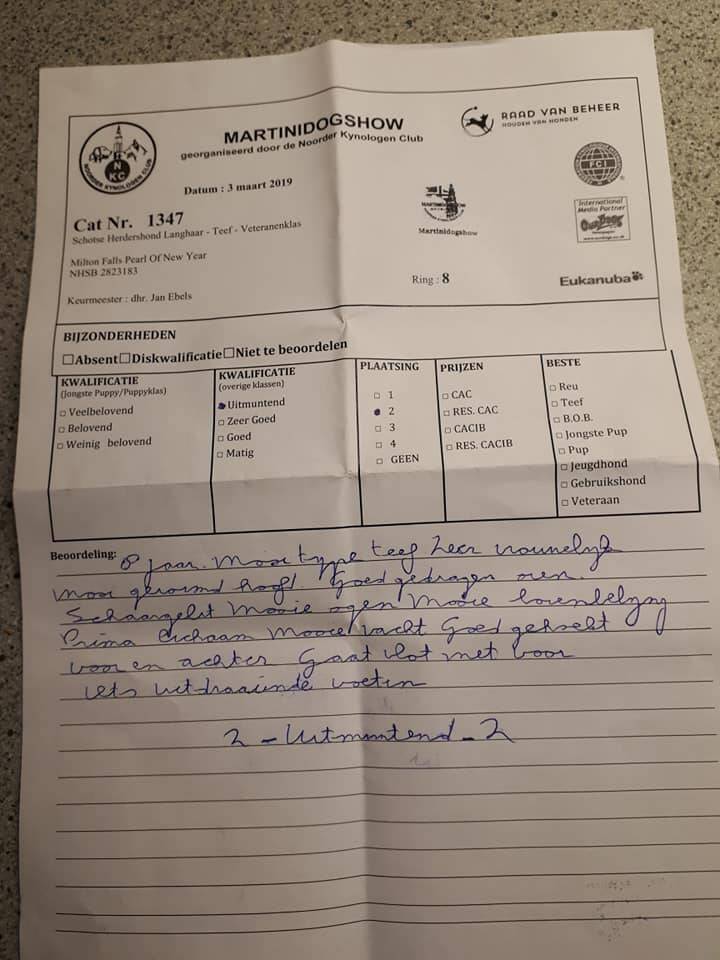 MARTINIDOGSHOW
georganiseerd door de Noorder Kynologen Club
NOORDER KYNOLOGEN CLUB
N
KC
RAAD VAN BEHEER
HOUDEN VAN HONDEN
Datum : 3 maart 2019
FCI
Cat Nr. 1347
Schotse Herdershond Langhaar - Teef - Veteranenklas
Martinidogshow
International
Media Partner
Our Dogs
Milton Falls Pearl Of New Year
NHSB 2823183
Ring : 8
Eukanuba
Keurmeester : dhr. Jan Ebels
BIJZONDERHEDEN
☐Absent☐Diskwalificatie☐Niet te beoordelen
KWALIFICATIE
(Jongste Puppy/Puppyklas)
□ Veelbelovend
□ Belovend
□ Weinig belovend
KWALIFICATIE
(overige klassen)
Uitmuntend
□ Zeer Goed
□ Goed
□ Matig
PLAATSING
□ 1
2
□ 3
□ 4
□ GEEN
PRIJZEN
□ CAC
□ RES. CAC
□ CACIB
□ RES. CACIB
BESTE
□ Reu
□ Teef
□ B.O.B.
□ Jongste Pup
□ Pup
□ Jeugdhond
□ Gebruikshond
□ Veteraan
Beoordeling: 8 jaar. Mooi type teef zeer vrouwelijk
mooi gevormd hoofd Goed gedragen oren.
Schaargebit Mooie ogen Mooie bovenbelijning
Prima lichaam Mooie vacht Goed gehoekt
voor en achter Gaat vlot met voor
iets uitdraaiende voeten
2 - Uitmuntend - 2